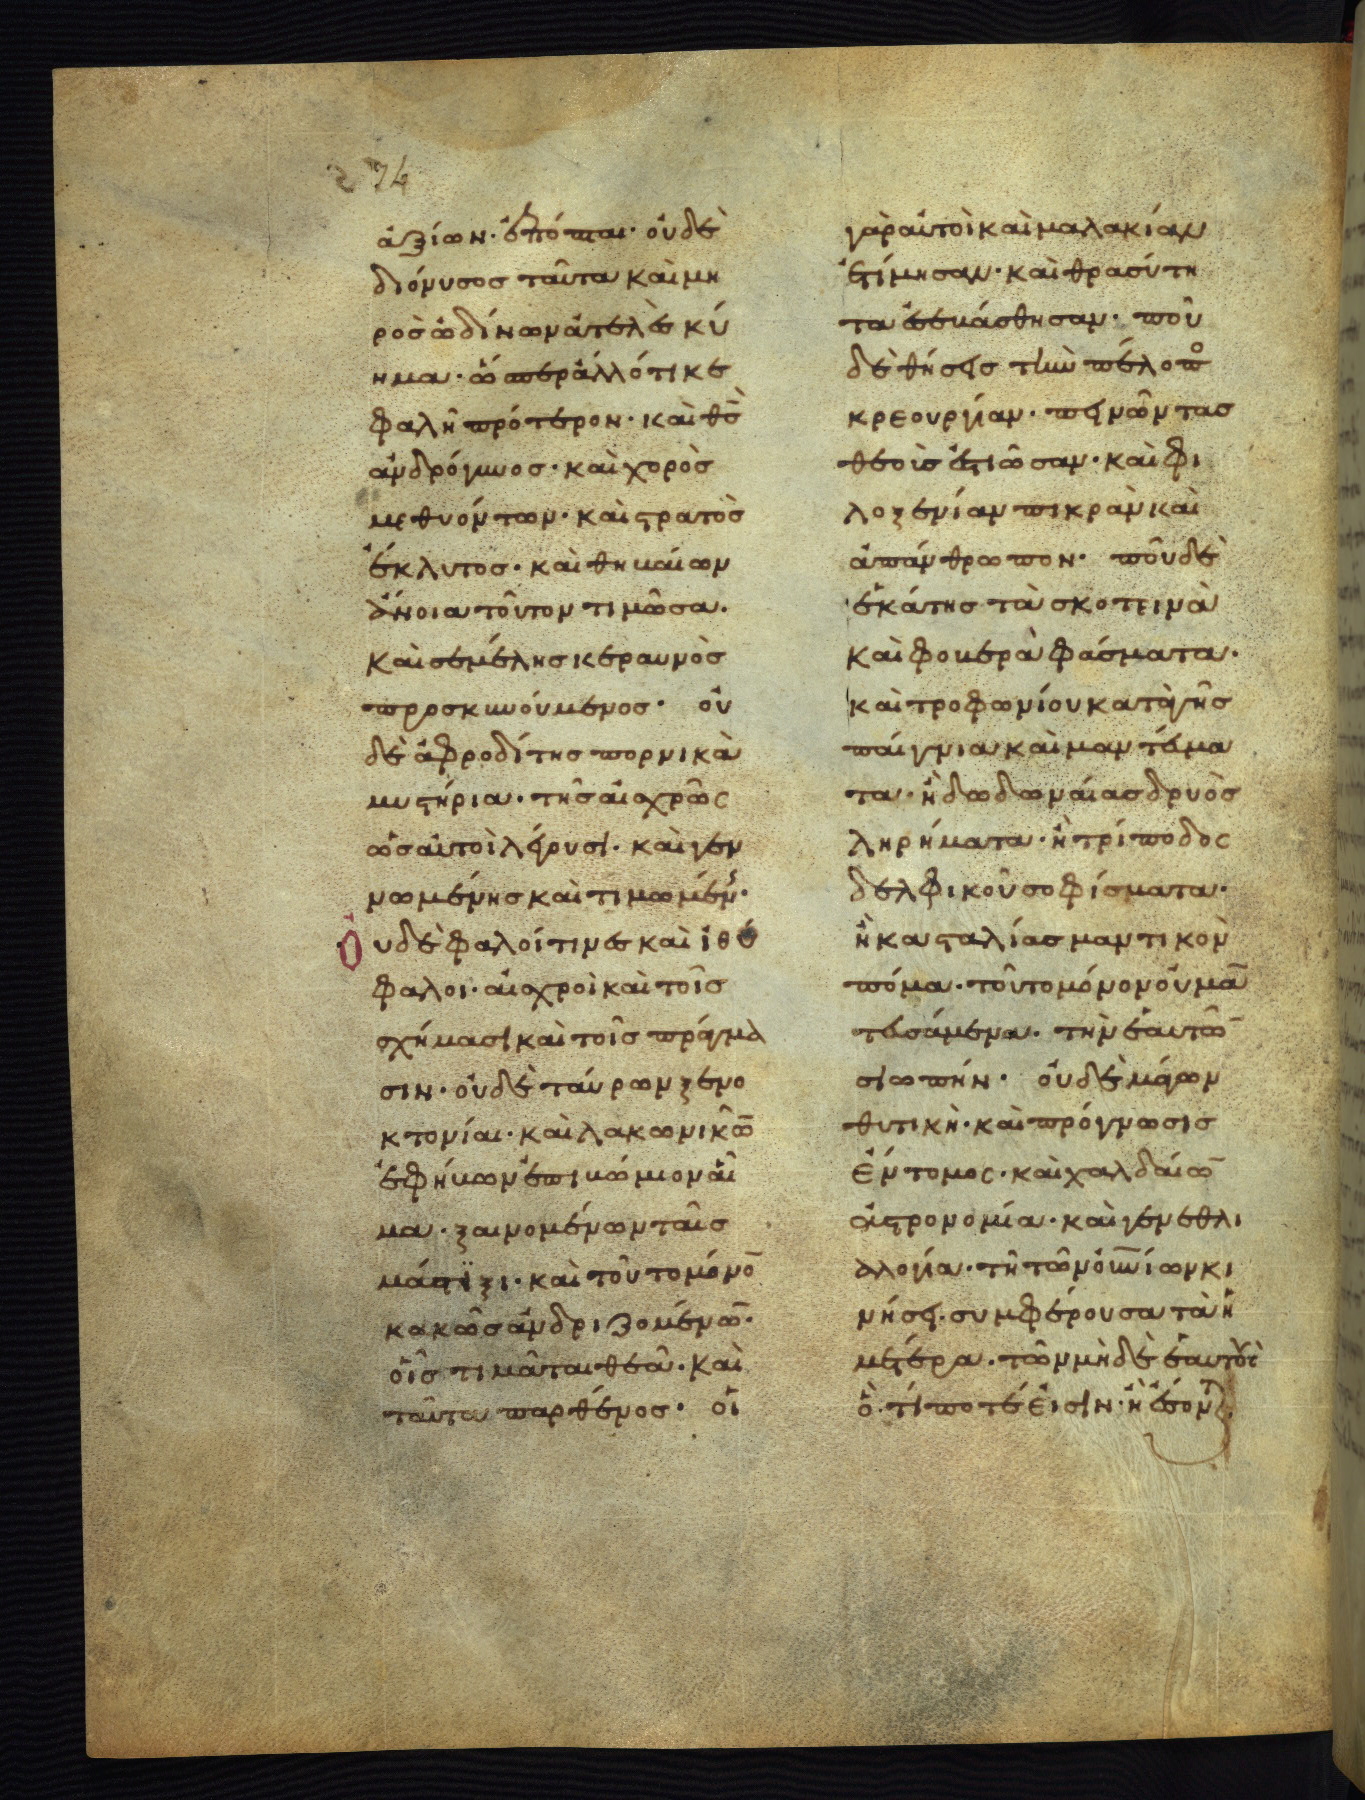 274
ἀξίων· ἐπόπται· οὐδὲ
διόνυσος ταῦτα καὶ μη
ρὸς ὠδίνων ἀτελὲς κύ
ημα· ὥσπερ ἄλλό τι κε
φαλὴ πρότερον· καὶ θς̀
ἀνδρόγυνος· καὶ χορὸς
μεθυόντων· καὶ στρατὸς
ἔκλυτος· καὶ θηβαίων
ἄνοια τοῦτον τιμῶσα·
καὶ σεμέλης κεραυνὸς
προσκυνούμενος· οὐ
δὲ ἀφροδίτης πορνικὰ
μυστήρια· τῆς αἰσχρῶς
ὡς αὐτοὶ λέγουσι· καὶ γεν
νωμένης καὶ τιμωμένης·
Οὐδὲ φαλοί τινες καὶ ἰθύ
φαλοι· αἰσχροὶ καὶ τοῖς
σχήμασι καὶ τοῖς πράγμα
σιν· οὐδὲ ταύρων ξενο
κτονίαι· καὶ λακωνικῶ̄
ἐφήβων ἐπιβώμιον αἷ
μα· ξαινομένων ταῖς
μάστιξι· καὶ τοῦτο μόνο̄
κακῶς ἀνδριζομένω̄·
οἷς τιμᾶται θεά· καὶ
ταῦτα παρθένος· οἱ
γὰρ αὐτοὶ καὶ μαλακίαν
ἐτίμησαν· καὶ θρασύτη
τα ἐσεβάσθησαν· ποῦ
δὲ θήσεις τὴν πέλοπο
κρεουργίαν· πεινῶντας
θεοὺς ἑστιῶσαν· καὶ φι
λοξενίαν πικρὰν καὶ
ἀπάνθρωπον· ποῦ δὲ
ἑκάτης τὰ σκοτεινὰ
καὶ φοβερὰ φάσματα·
καὶ τροφωνίου κατὰ γῆς
παίγνια καὶ μαντεύμα
τα· ἢ δωδωναίας δρυὸς
ληρήματα· ἢ τρίποδος
δελφικοῦ σοφίσματα·
ἢ κασταλίας μαντικὸν
πόμα· τοῦτο μόνον οὐ μᾱ
τευσάμενα· τὴν ἑαυτῶ̄
σιωπήν· οὐδὲ μάγων
θυτικὴ· καὶ πρόγνωσις
ἔντομος· καὶ χαλδαίω̄
ἀστρονομία· καὶ γενεθλι
αλογία· τῇ τῶν οὐνίων κι
νήσει· συμφέρουσα τὰ ἡ
μέτερα· τῶν μὴ δὲ ἑαυτοὺς
ὅ τί ποτέ εἰσιν· ἢ ἔσονται